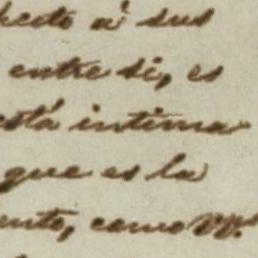 pecto á sus
entre si, es
está intima
que es la
ento, como VV.